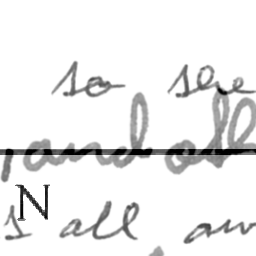 so she
and all
N
s all